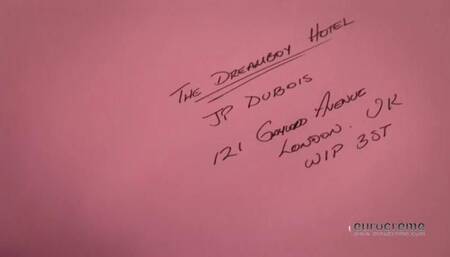 THE DREAMBOY HOTEL
JP DUBOIS
121 AVENUE
LONDON. UK
W1P 3ST
eurocreme
www.eurocreme.com